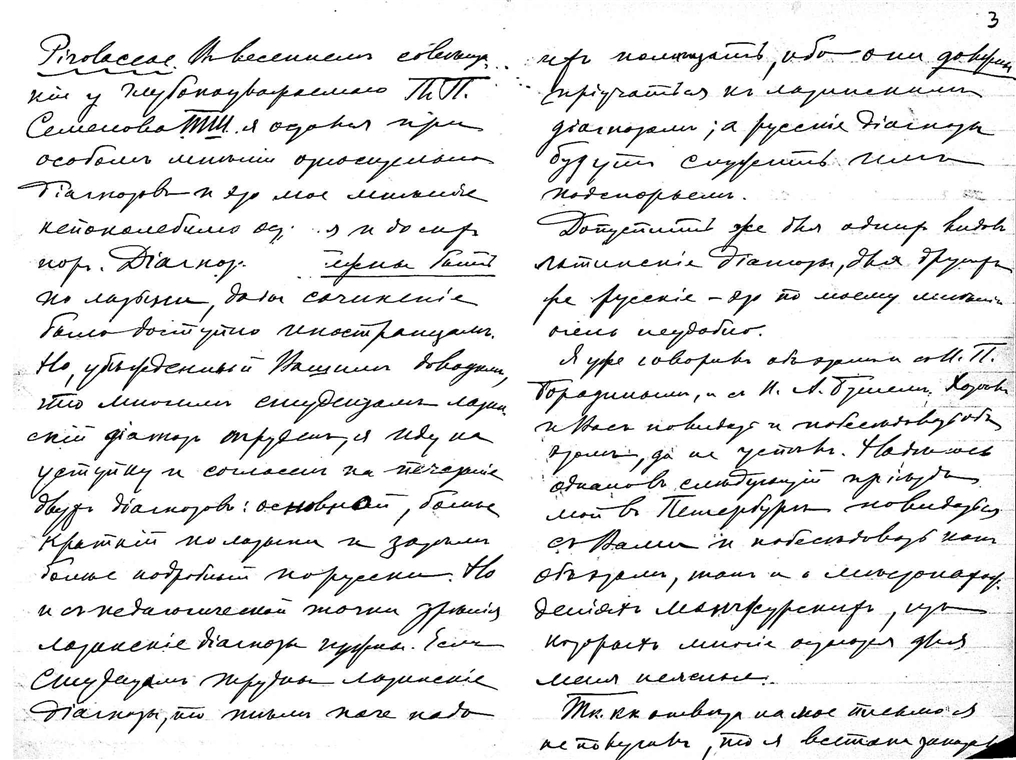 3
Pirolaceae. На весеннем совѣща-
нiи у глубокоуважаемого П. П.
Семенова ТШ. я остался при
особом мнѣнiи относительно
дiагнозов и это мое мнѣнiе
непоколебимо я и до сих
пор. Дiагноз. лжны быть
по латыни, дабы сочиненiе
было доступно иностранцам.
Но, убѣжденный Вашими доводами,
что многим студентам латин-
скiй дiагноз труден, я иду на
уступку и согласен на печатанiе
двух дiагнозов: основной, более
краткiй по латыни и затѣм
более подробный порусски. Но
и съ педагогической точки зрѣнiя
латинскiе дiагнозы нужны. Если
студентам трудны латинскiе
дiагнозы, то тѣмъ паче надо
их помѣщать, ибо они должны
прiучаться къ латинским
дiагнозам; а русскiе дiагнозы
будутъ служить имъ
подспорьем.
Допустить же для одних видов
латинскiе дiагнозы, для других
же русскiе – это по моему мнѣнiю
очень неудобно.
Я уже говорил объ этом и съ И. П.
Бородиным, и с Н. А. Бушем. Хотѣл
и Вас повидать и побесѣдовать объ
этом, да не успѣлъ. Надѣюсь
однаковъ слѣдующiй прiѣздъ
мой в Петербургъ повидаться
съ Вами и побесѣдовать как
объ этом, так и о мѣстонахож-
денiяхъ манчжурских, изъ
которыхъ многiе остаются для
меня неясные.
Тк. кк отвѣта на мое письмо я
не получил, то я всетаки